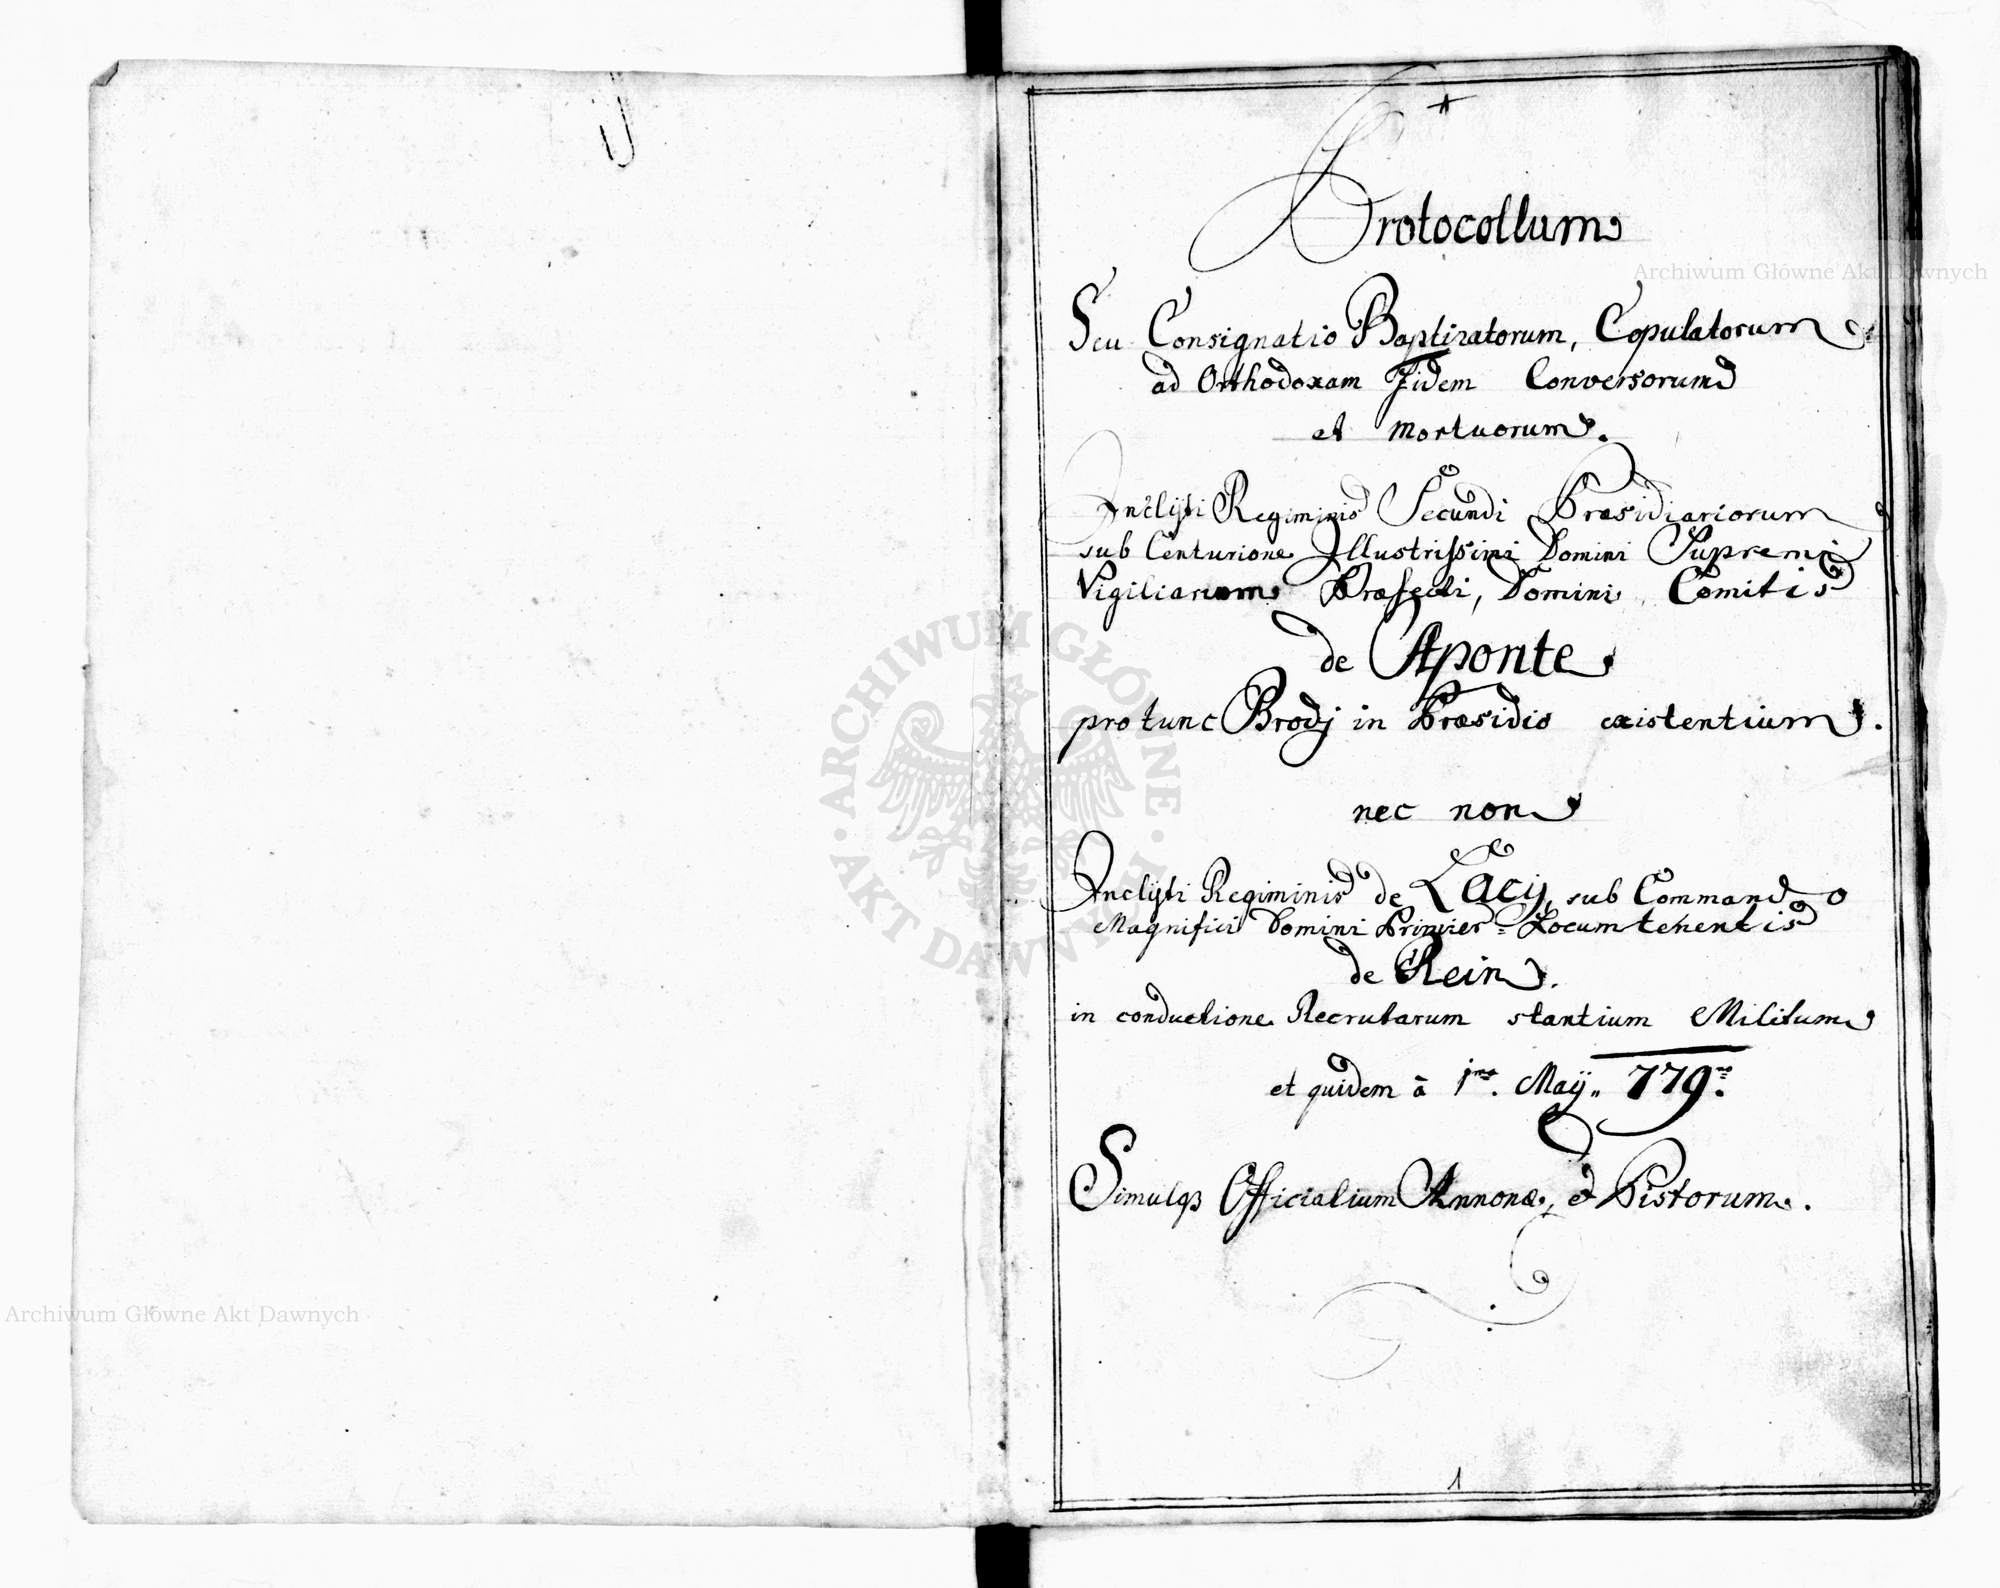 Protocollum
Seu Consignatio Baptizatorum, Copulatorum
ad Orthodoxam Fidem Conversorum
et Mortuorum.
Inclÿti Regiminis Secundi Præsidiariorum
sub Centurione Illustrissimi Domini Supremi
Vigiliarum Præfecti, Domini Comitis
de Aponte
pro tunc Brodÿ in Præsidio existentium.
nec non
Inclÿti Regiminis de Lacÿ, sub Commando
Magnifici Domini Primier=Locumtenentis
de Rein.
in conductione Recrutarum stantium Militum
et quidem à 1ma. Maÿ 779no.
Simulq3 Officialium Annonæ, et Pistorum.
1
Archiwum Główne Akt Dawnych
Archiwum Główne Akt Dawnych
ARCHIWUM GŁÓWNE
AKT DAWNYCH